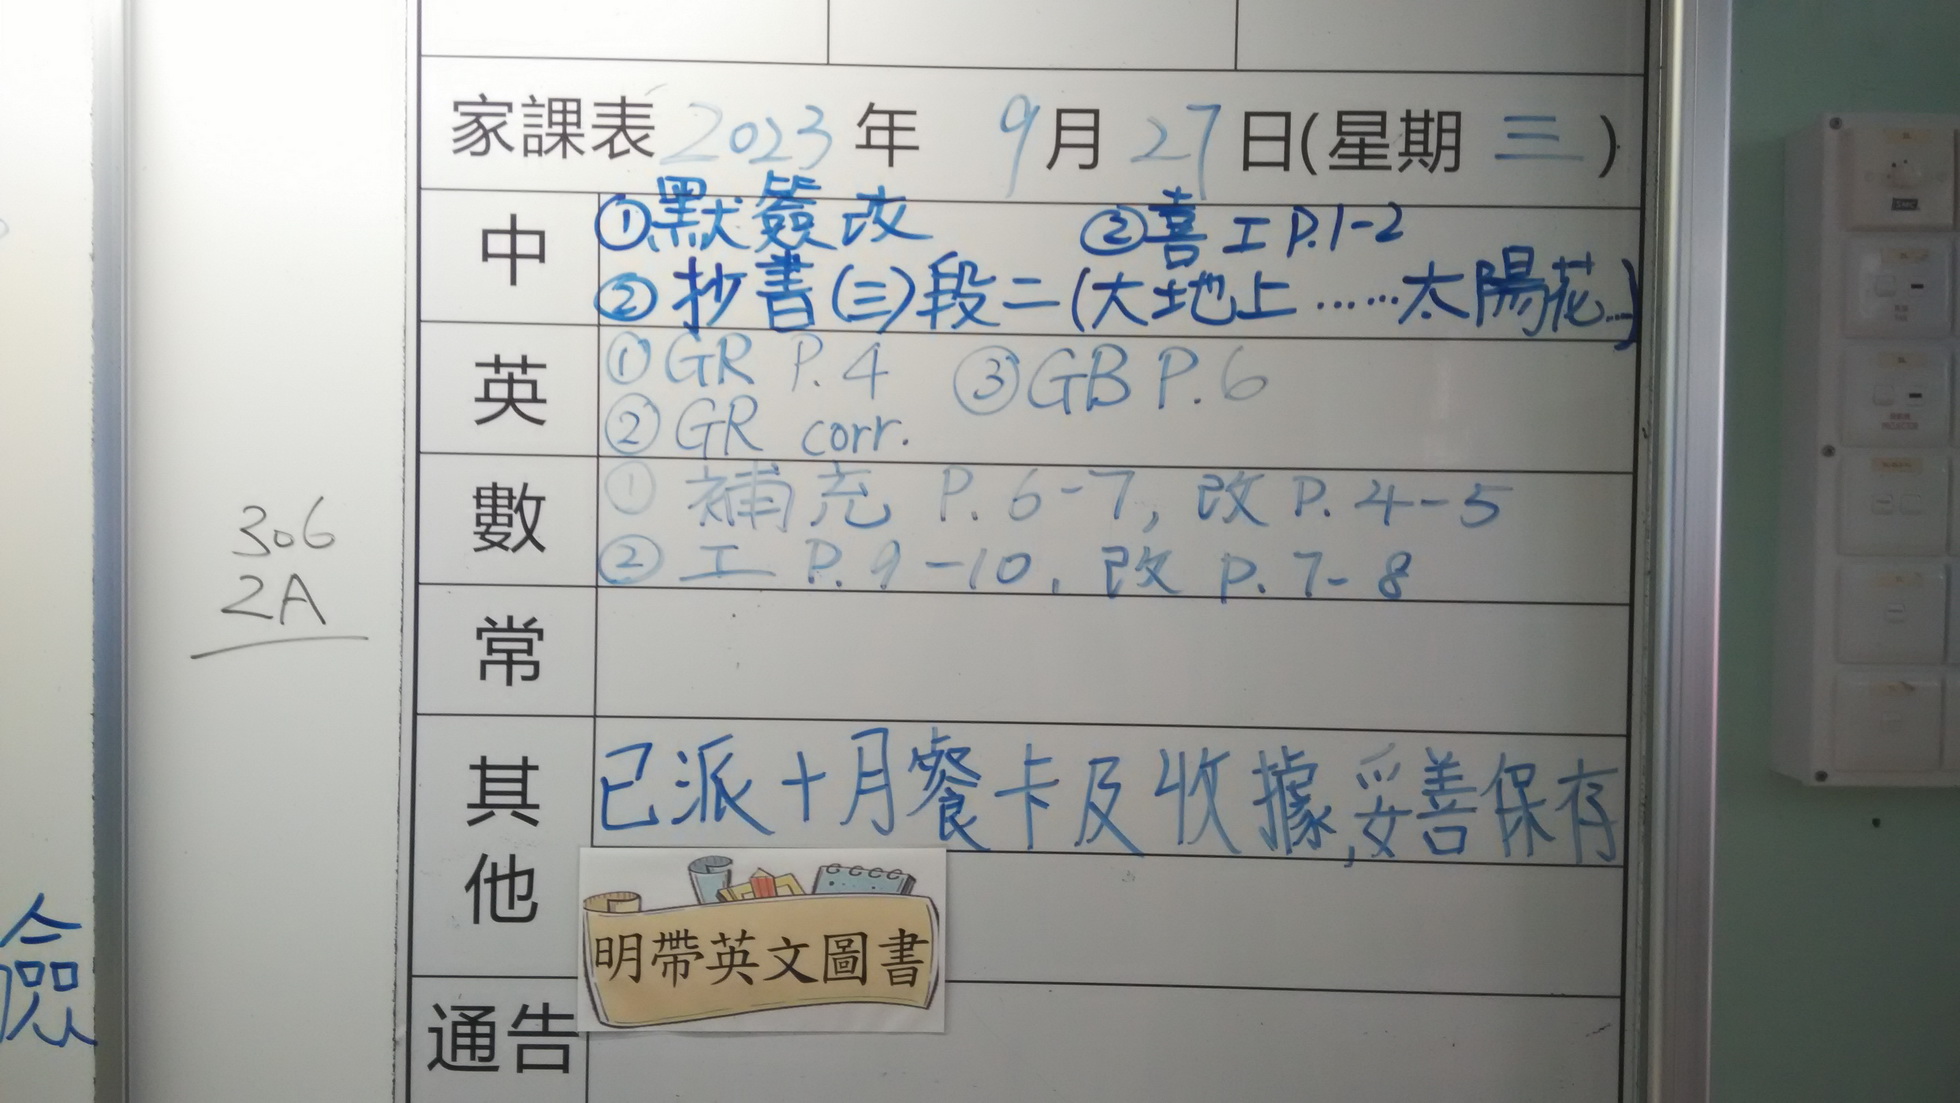 家課表 2023年 9月 27日(星期 三 )
中
①默簽改 ②喜工P.1-2
②抄書(三)段二(大地上……太陽花…)
英
①GR P.4 ③GB P.6
②GR corr.
數
① 補充 P.6-7, 改P.4-5
② 工 P.9-10, 改 P.7-8
常
306
2A
其他
已派十月餐卡及收據,妥善保存
明帶英文圖書
通告